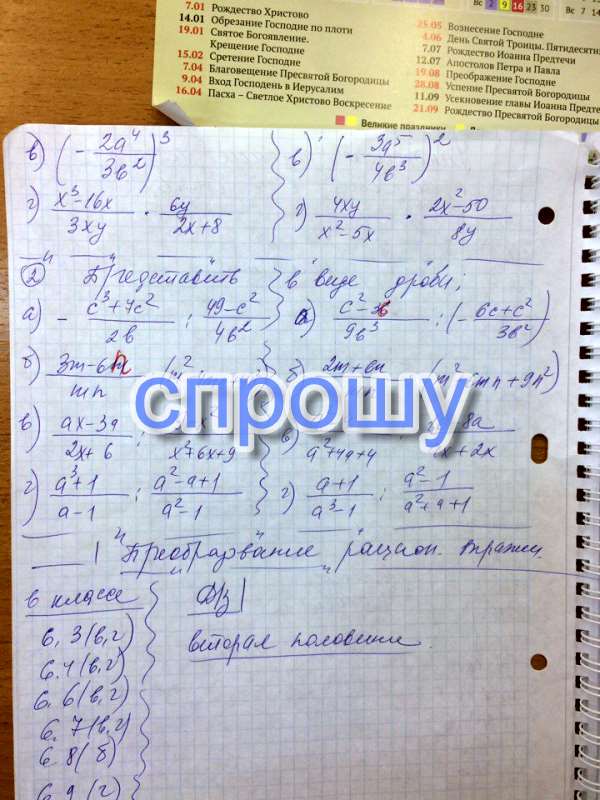 7.01 Рождество Христово
14.01 Обрезание Господне по плоти
19.01 Святое Богоявление.
Крещение Господне
15.02 Сретение Господне
7.04 Благовещение Пресвятой Богородицы
9.04 Вход Господень в Иерусалим
16.04 Пасха – Светлое Христово Воскресение
25.05 Вознесение Господне
4.06 День Святой Троицы. Пятидесятн
7.07 Рождество Иоанна Предтечи
12.07 Апостолов Петра и Павла
19.08 Преображение Господне
28.08 Успение Пресвятой Богородицы
11.09 Усекновение главы Иоанна Предте
21.09 Рождество Пресвятой Богородицы
Вс 2 9 16 23 30
Вс 7 14
Великие праздники
в) (- 2a⁴/3b²)³ в) (- 3a⁵/4b³)²
г) x³-16x/3xy · 6y/2x+8 г) 4xy/x²-5x · 2x²-50/8y
2 Представить в виде дроби;
а) - c³+7c²/2b : 49-c²/4b² а) c²-36/9b³ : (- 6c+c²/3b²)
б) 3m-6n/mn б) mn+9n²)
в) ax-3a/2x+6 : /x²+6x+9 в) /a²+4a+4 : 8a/x+2x
г) a³+1/a-1 : a²-a+1/a²-1 г) a+1/a³-1 : a²-1/a²+a+1
спрошу
Преобразование рацион. выражен.
в классе Д/з
6.3(в,г) вторая половина.
6.4(в,г)
6.6(в,г)
6.7(в,г)
6.8(б)
6.9(г)